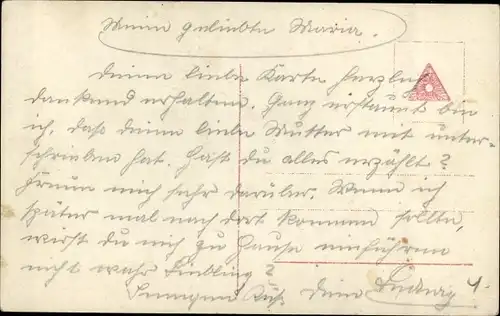 Meine geliebte Maria.
Deine liebe Karte herzlich
dankend erhalten. Ganz erstaunt bin
ich, dass deine liebe Mutter mit unter-
schrieben hat. Hast du alles erzählt?
Freue mich sehr darüber. Wenn ich
später mal nach dort kommen sollte,
wirst du mich zu Hause einführen
nicht wahr Liebling?
Innigen Kuss Dein Ludwig